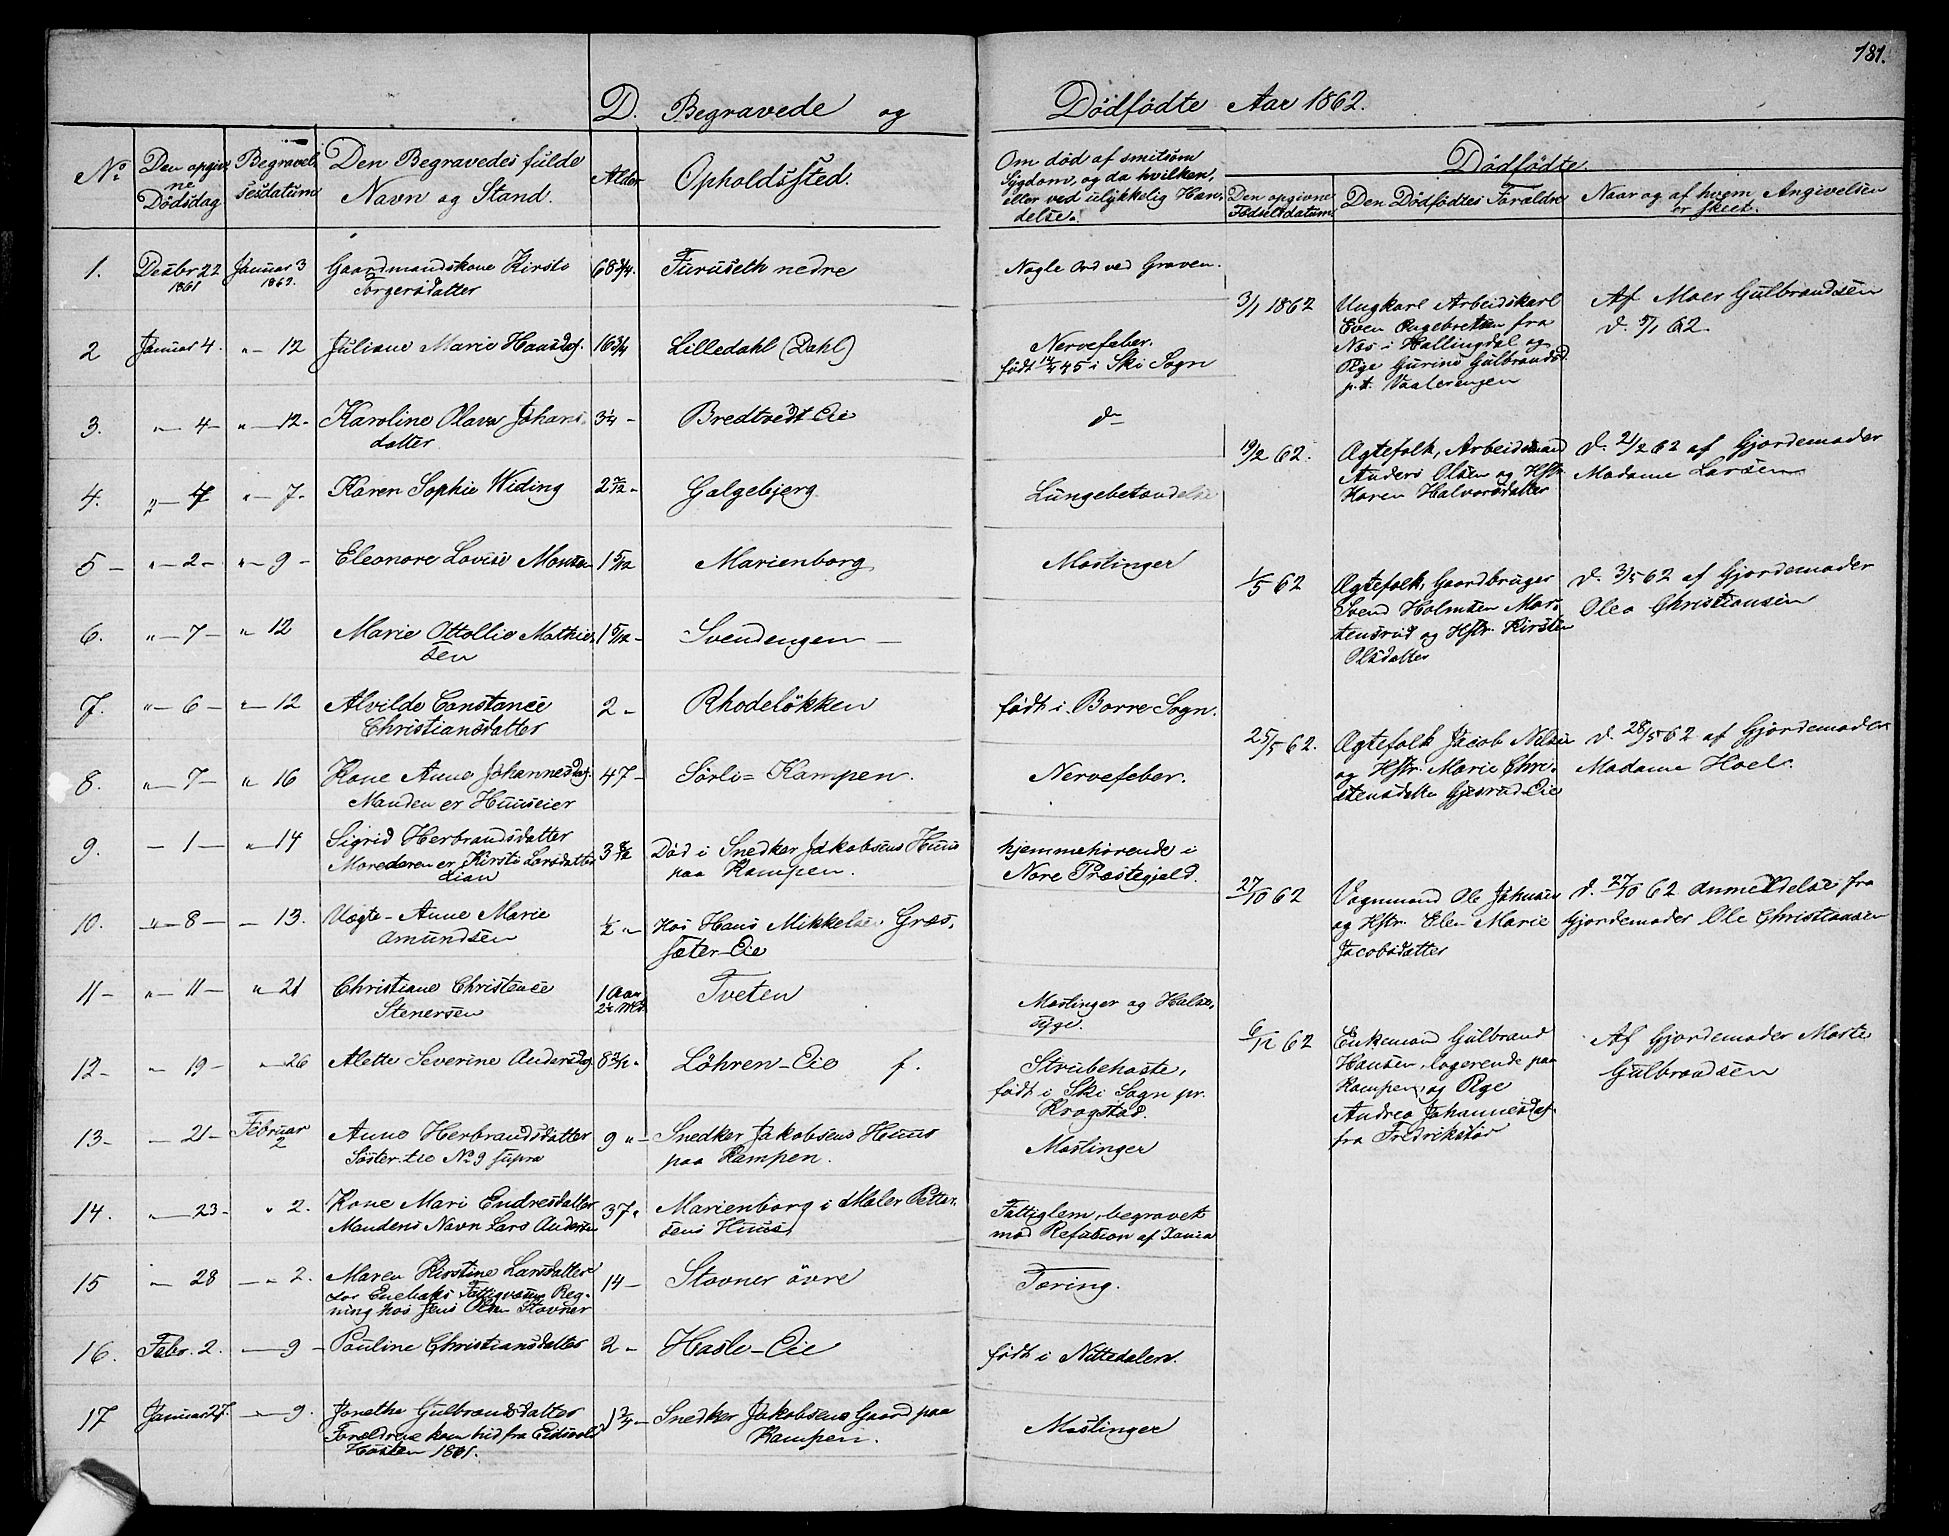 181.
D. Begravede og Dödfödte Aar 1862.
No
Den opgiv-
ne
Dödsdag
Begravel-
sesdatum
Den Begravedes fulde
Navn og Stand.
Alder
Opholdssted.
Om död af smitsom
Sygdom, og da hvilken,
eller ved ulykkelig Hæn-
delse.
Dödfödte.
Den opgivne
Födselsdatum
Den Dödfödtes Forældre
Naar og af hvem Angivelsen
er skeet.
1. Decbr 22 1861 Januar 3 1862. Gaardmandskone Kirsti
Torgersdatter
68 3/4. Furuseth nedre
Nogle Ord ved Graven.
2 Januar 4. " — 12 Juliane Marie Hansdtr. 16 3/4 Lilledahl (Dahl)
Nervefeber.
födt 14/4 45 i Ski Sogn
3. " — 4 — " — 12. Karoline Olava Johans-
datter
3 1/4 — Bredtvedt-Eie
do
4. " — 4 " — 7. Karen Sophie Widing 2 7/12 — Galgebjerg
Lungebetændelse
5 — " — 2 — " — 9 — Eleonore Lovise Monsen 1 5/12 Marienborg
Mæslinger
6. " — 7 — " 12 Marie Ottillie Mathie-
sen
1 5/12 — Svendengen —
7. " — 6 — " — 12 Alvilde Constance
Christiansdatter
2 — Rhodelökken
födt i Borre Sogn.
8. " — 7 — " 16 Kone Anne Johannesdtr.
Manden er Huuseier
47 — Sörli = Kampen.
Nervefeber.
9. — 1 — " — 14 Sigrid Herbrandsdatter
Moderen er Kirsti Larsdatter
Lian
3 8/12 Död i Snedker Jakobsens Huus
paa Kampen.
hjemmehörende i
Nore Præstegjeld.
10. " — 8 — — 13. Uægte - Anne Marie
Amundsen
1/2 " — Hos Hans Mikkelsen Græs-
sæter-Eie
11 — " — 11 — " 21 Christiane Christence
Stenersen
1 Aar
2 1/2 Md.
Tveten
Mæslinger og Halse-
syge.
12 — " 19 — " — 26 Alette Severine Andersdtr. 8 Löhren-Eie f.
Strubehoste,
födt i Ski Sogn pr.
Kragstad.
13 — — 21 — Februar
2
Anne Herbrandsdatter
Söster til No 9 supra
9 " — Snedker Jakobsens Huus
paa Kampen.
Mæslinger
14. " — 23 — " 2. Kone Mari Endresdatter
Mandens Navn Lars Andersen
37 " Marienborg i Maler Petter-
sens Huus
Fattiglem, begravet
mod Refusion af Xania
15 — 28 — " 2. Maren Kirstine Larsdatter
for Enebaks Fattigvæsens Reg-
ning hos Jens Olsen Stovner
14 — Stovner övre
Tæring.
16. Febr. 2. — 9 — Pauline Christiansdatter 2 — Hasle-Eie
födt i Nittedalen.
17 Januar 27. — 9. Jonetha Gulbrandsdatter
Forældrene kom hid fra Eidsvold
Hösten 1861.
1 3/4 — Snedker Jakobsens Gaard paa
Kampen.
Mæslinger
3/1 1862 Ungkarl Arbeidskarl
Even Engebretsen fra
Næs i Hallingdal og
Pige Gurine Gulbrandsd.
p.t. Vaalerengen
Af Moer Gulbrandsen
d. 5/1 62.
19/2 62. Ægtefolk, Arbeidsmand
Anders Olsen og Hstr.
Karen Halvorsdatter
d. 21/2 62 af Gjordemoder
Madame Larsen
1/5 62 Ægtefolk, Gaardbruger
Svend Holmsen Mor-
tensrud og Hstr. Kirsten
Olsdatter
d. 3/5 62 af Gjordemoder
Olea Christiansen
25/5 62. Ægtefolk Jacob Nilsen
og Hstr. Marie Chri-
stensdatter Gjesrud-Eie
d. 28/5 62 af Gjordemoder
Madame Hoel.
27/10 62 Vognmand Ole Johnsen
og Hstr. Elen Marie
Jacobsdatter
d. 27/10 62 Anmeldelse fra
Gjordemoder Ole Christiansen
6/12 62 Enkemand Gulbrand
Hansen, logerende paa
Kampen, og Pige
Andrea Johannesdtr.
fra Fredrikstad
Af Gjordemoder Marte
Gulbrandsen